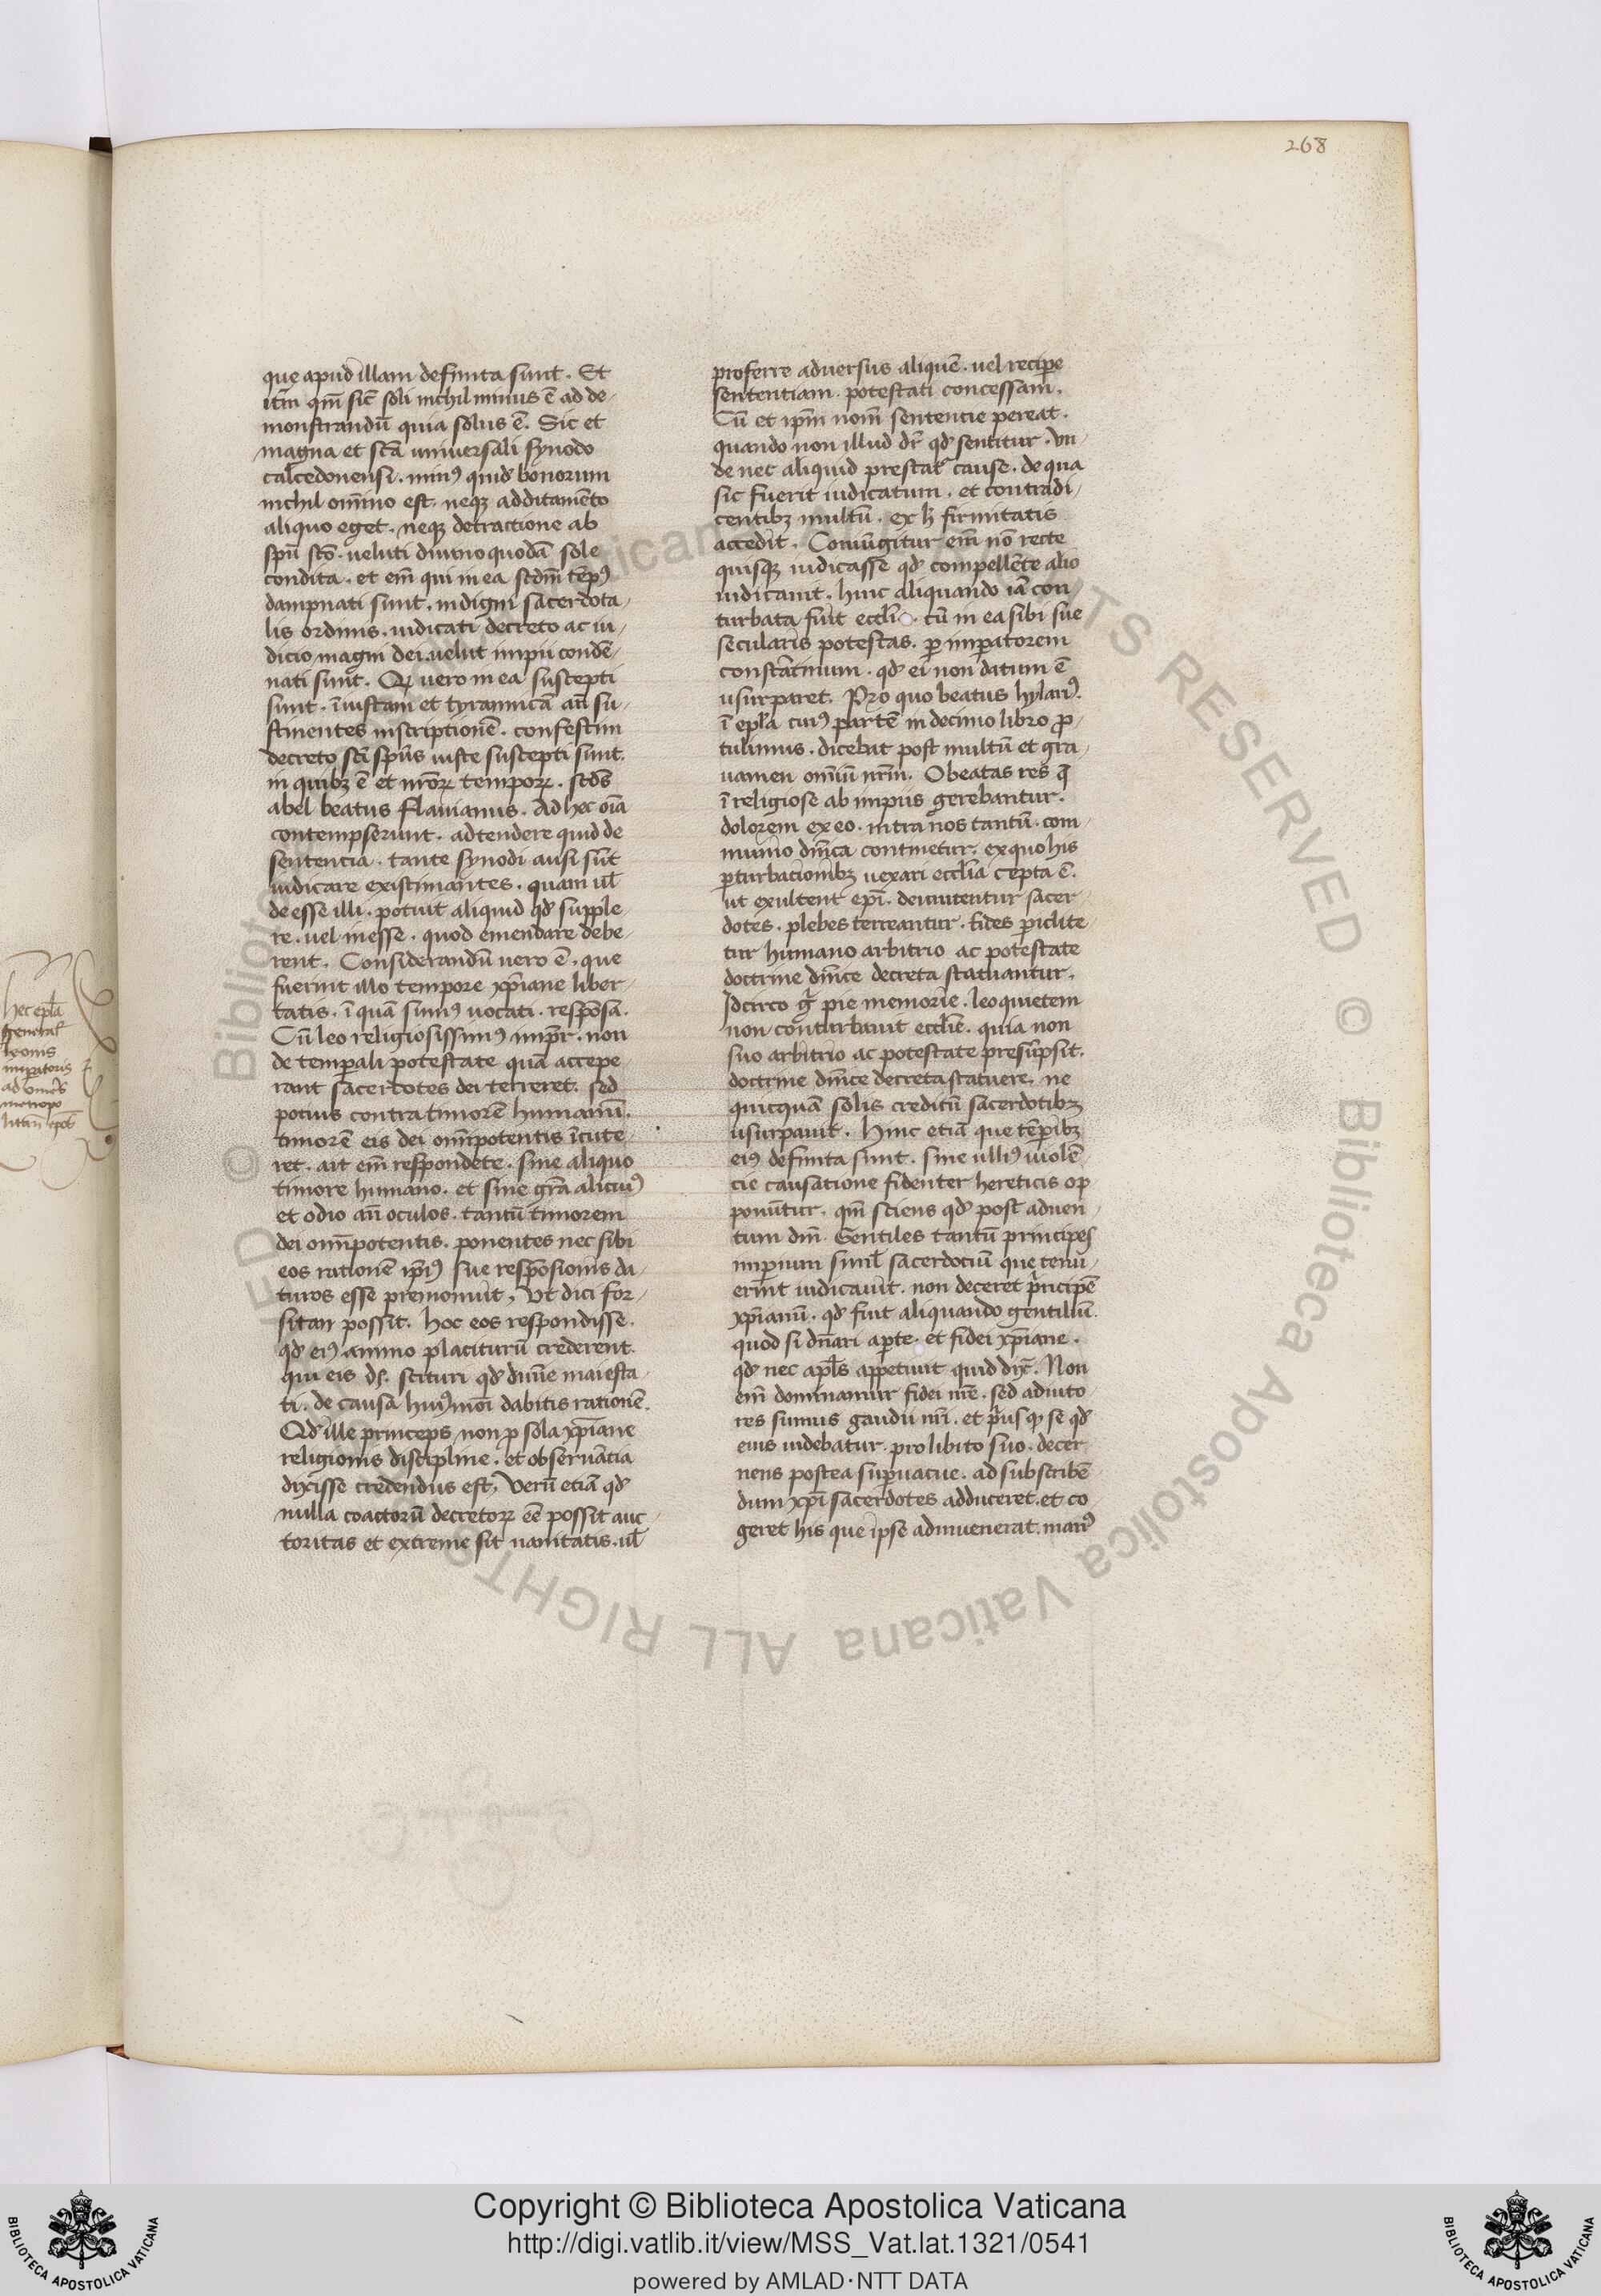 268
que apud illam definita sunt . Et
itm̄ qm̄ sic̄ soli nichil minus ē ad de-
monstrandū quia solus ē . Sic et
magna et scā universali synodo
calcedonensi . minꝰ quid bonorum
nichil om̄ino est . neqꝫ additamēto
aliquo eget . neqꝫ detractione ab
spū scō . veluti divino quodā sole
condita . et em̄ qui in ea scdm̄ tēpꝰ
dampnati sunt . indigni sacerdota-
lis ordinis . iudicati decreto ac iu-
dicio magni dei velut impii condē-
nati sunt . Qui vero in ea suscepti
sunt . īiustam et tyrannicā an̄ su-
stinentes inscriptionē . confestim
decreto sci sp̄us iuste suscepti sunt .
in quibꝫ ē et nr̄oꝝ tempoꝝ . scds̄
abel beatus flavianus . Ad hec oīa
contempserunt . adtendere quid de
sentencia . tante synodi ausi sūt
iudicare existimantes . quam ul̄
de esse illi . potuit aliquid qd̄ supple-
re . vel inesse . quod emendare debe-
rent . Considerandū vero ē . que
fuerint illo tempore xp̄iane liber-
tatis . ī quā sumꝰ vocati . respōsa .
Cū leo religiosissimꝰ imp̄r . non
de temp̄ali potestate quā accepe
rant sacerdotes dei terreret . sed
potius contra timorē humanū .
timorē eis dei om̄ipotentis īcute-
ret . ait em̄ respondete . sine aliquo
timore humano . et sine gr̄a alicuiꝰ
et odio an̄ oculos . tantū timorem
dei om̄ipotentis . ponentes nec sibi
eos rationē ip̄iꝰ sue respōsionis da-
turos esse premonuit , Ut dici for-
sitan possit . hoc eos respondisse .
qd̄ eiꝰ animo placiturū crederent .
qui eis ds̄ . scituri qd̄ diuīe maiesta-
ti . de causa huiꝰmōi dabitis rationē .
Qd̄ ille princeps non p̱ sola xp̄iane
religionis discipline . et observātia
dixisse credendus est , Verū etiā qd̄
nulla coactorū decretoꝝ eē possit auc-
toritas et extreme sit vanitatis . ul̄
proferre adversus aliquē . vel recipe
sententiam . potestati concessam .
Cū et ip̄m nom̄ sentencie pereat .
quando non illud dr̄ qd̄ sentitur . Un-
de nec aliquid prestat̄ cause . de qua
sic fuerit iudicatum . et contradi-
centibꝫ multū . ex h̄ firmitatis
accedit . Coniungitur em̄ nō recte
quisqꝫ iudicasse qd̄ compellēte alio
iudicavit . hinc aliquando iā con-
turbata fuit eccl̄i . tū in ea sibi sue
secularis potestas . ꝑ imp̄atorem
constātinum . qd̄ ei non datum ē
usurparet . Pro quo beatus hylariꝰ .
ī epl̄a cuiꝰ partē in decimo libro ꝓ-
tulimus . dicebat post multū et gra-
vamen om̄iū nr̄m . O beatas res q̄
ī religiose ab impiis gerebantur .
dolorem ex eo . intra nos tantū . com-
munio dnīca continetur . ex quo his
ꝑturbacionibꝫ vexari eccl̄ia cepta ē .
ut exultent epī . deinutentur sacer-
dotes . plebes terreantur . fides ꝑiclite-
tur humano arbitrio ac potestate
doctrine dnīce decreta statuantur .
Idcirco gͥ pie memorie . leo quietem
non conturbavit eccl̄ie . quia non
suo arbitrio ac potestate presūpsit .
doctrine dnīce decreta statuere . ne
quicquā solis creditū sacerdotibꝫ
usurpavit . Hinc etiā que tēp̄ibꝫ
eiꝰ definita sunt . sine ulliꝰ violē-
cie causatione fidenter hereticis op-
ponūtur . qm̄ sciens qd̄ post adven
tum dn̄i . Gentiles tantū principes
imp̄ium simul̄ sacerdociū que tenu-
erint iudicavit . non deceret pͥncipē
xp̄ianū . qd̄ fuit aliquando gentiliū .
quod si dn̄ari aꝑte . et fidei xp̄iane .
qd̄ nec apl̄s appetivit quid dix̄ . Non
em̄ dominamur fidei nr̄e . sed adiuto-
res sumus gaudii nr̄i . et pͥus qͣ se qd̄
eius videbatur . pro libito suo . decer-
nens postea suꝑvacue . ad subscribē-
dum xp̄i sacerdotes adduceret . et co-
geret his que ipse adinvenerat . manꝰ
hec epl̄a
general̄
leonis
imꝑatoris
ad omēs
metropo
litan̄ epōs
Copyright © Biblioteca Apostolica Vaticana
http://digi.vatlib.it/view/MSS_Vat.lat.1321/0541
powered by AMLAD·NTT DATA
BIBLIOTECA APOSTOLICA VATICANA
BIBLIOTECA APOSTOLICA VATICANA
© Biblioteca Apostolica Vaticana ALL RIGHTS RESERVED